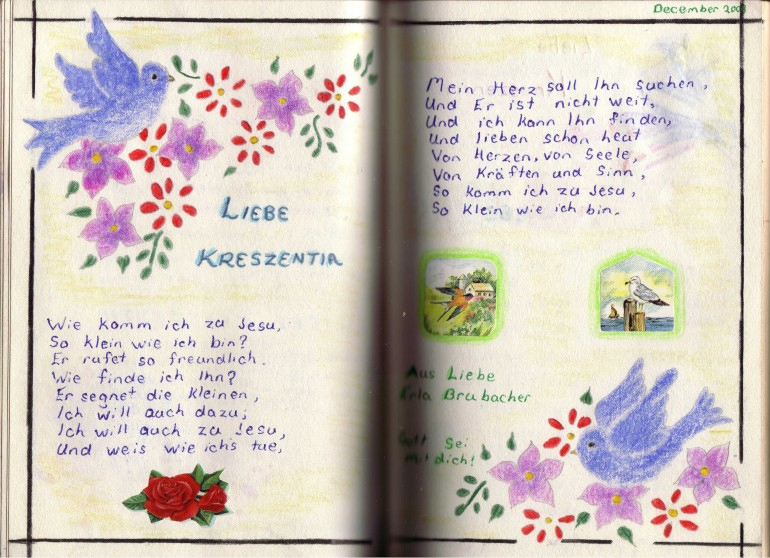 LIEBE
KRESZENTIA
Wie komm ich zu Jesu,
So klein wie ich bin?
Er rufet so freundlich.
Wie finde ich Ihn?
Er segnet die Kleinen,
Ich will auch dazu;
Ich will auch zu Jesu,
Und weis wie ich's tue,
December
Mein Herz soll Ihn suchen,
Und Er ist nicht weit,
Und ich kann Ihn finden,
Und lieben schon heut
Von Herzen, von Seele,
Von Kräften und Sinn,
So komm ich zu Jesu,
So klein wie ich bin.
Aus Liebe
Erla Brubacher
Gott Sei
Mit dich!